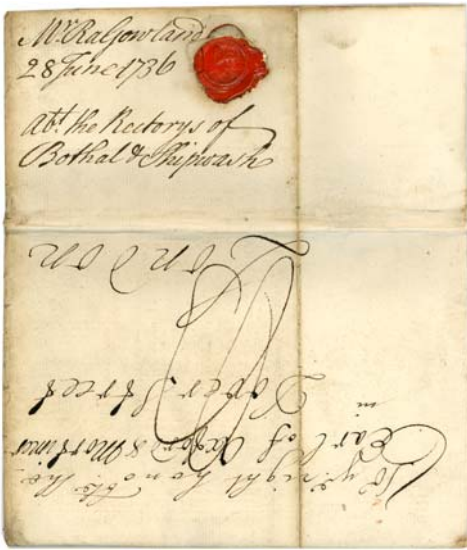 Mr. Ra Gowland
28 June 1736
abt. the Rectorys of
Bothal & Shipwash
To ye right honoble the
Earl of Oxford & Mortimer
in
Dover Street
London